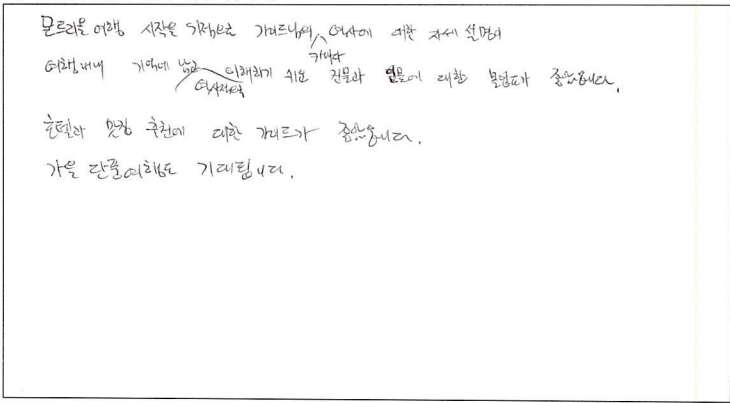 몬트리올 여행 시작을 기점으로 가이드님의 캐나다 역사에 대한 자세 설명이
여행내내 기억에 남고 역사적 이해하기 쉬운 건물과 인물에 대한 설명이 좋았습니다.
호텔과 맛집 추천에 대한 가이드가 좋았습니다.
가을 단풍여행도 기대됩니다.